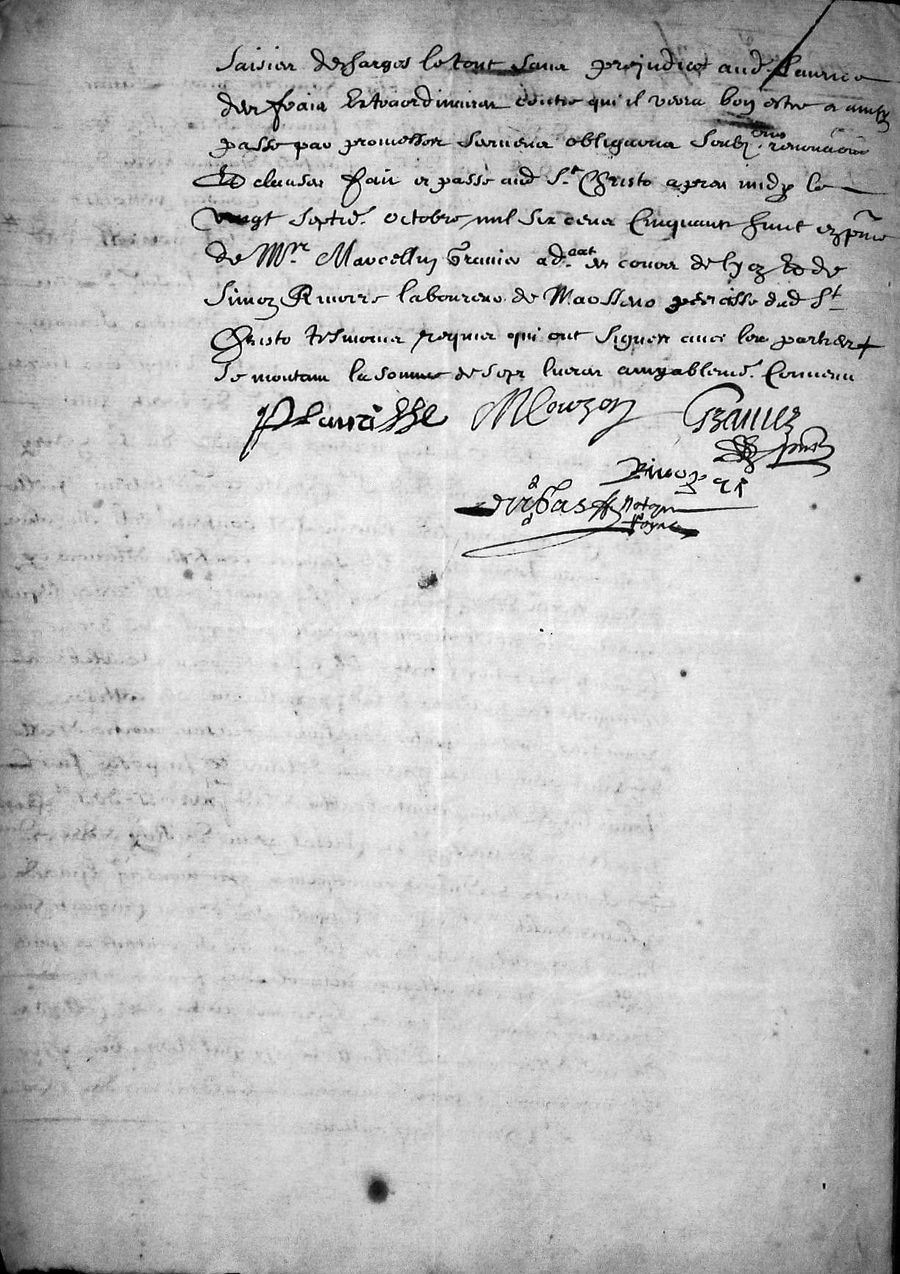 saisies descharges le tout sans prejudice aud. Laurice
des frais Extraordinaires contre qui il verra bon estre
passe par promesses sermens obligaons soubz renonciaons
Et clauses fait et passe aud St Christo apres midy le
vingt septie. octobre mil six cens Cinquante huit ez pnce
de Mre Marcellin Granier adcat es cours de lyon Et de
Simon Rivorre laboureur de parroisse dud St
Christo tesmoins requis qui ont signes avec les parties
Se montant la somme de sept livres amyablemt. Convenu
Mlouzon Granier
pnt
Notere
Royal